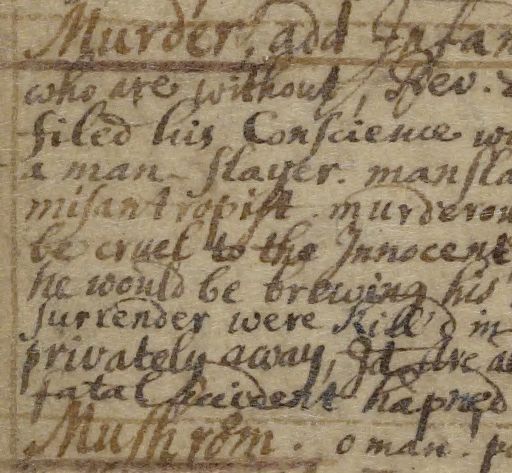 Murder, add Infan
who are without, Rev.
filed his Conscience wi
a man-slayer. mansla
misantropist. murderou
be cruel to the Innocent
he would be brewing his
surrender were kill'd in
privately away, Id are a
fatal accident hapned
Mushrom. o man. p